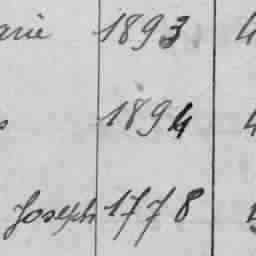 arie 1893 4
s 1894 4
Joseph 1778